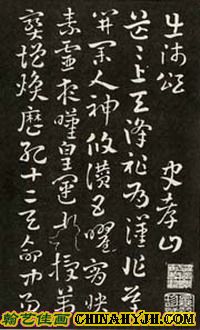 出師頌 史孝山
茫〻上天降祚為漢作基
開業人神攸讚五曜宵映
素靈夜嘆皇運來授萬
寶增焕歷紀十二天命中易
翰艺佳画 WWW.CHINAHYJH.COM